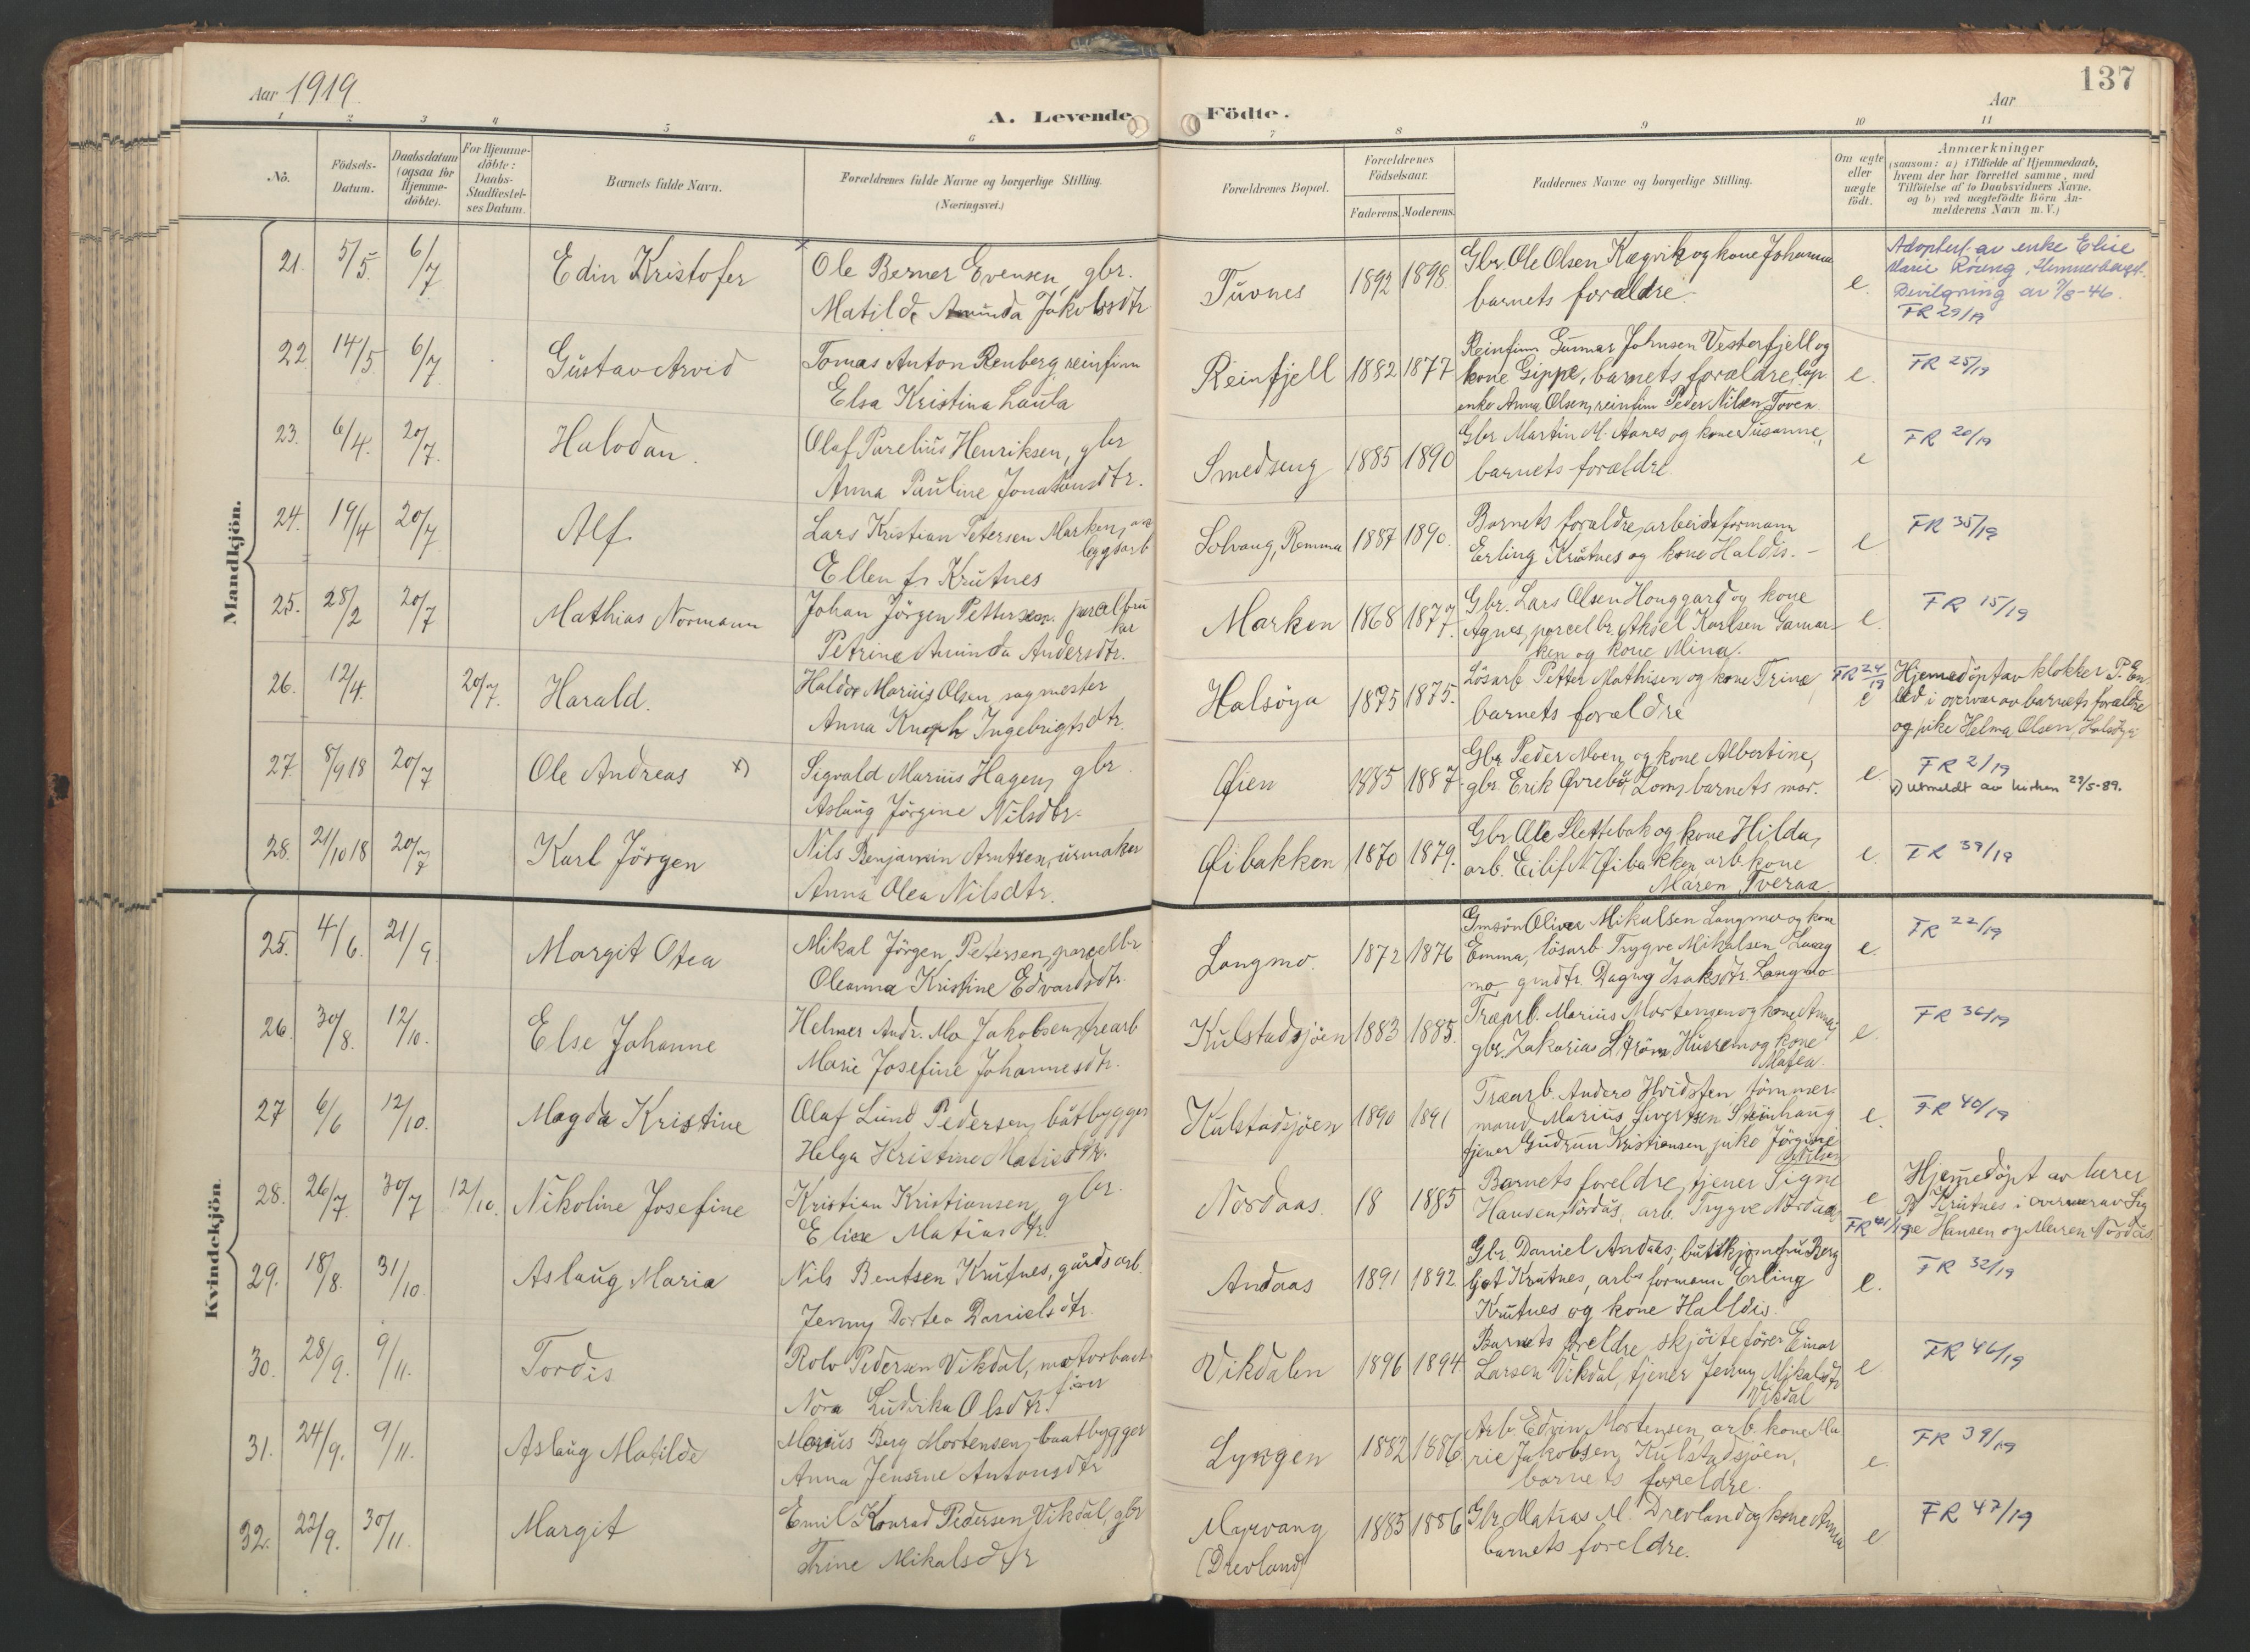 Aar 1919.
A. Levende Födte.
Aar
137
1 2 3 4 5 6 7 8 9 10 11
No.
Födsels-Datum.
Daabsdatum (ogsaa for Hjemme-döbte).
For Hjemme-döbte: Daabs-Stadfæstel-ses Datum.
Barnets fulde Navn.
Forældrenes fulde Navne og borgerlige Stilling.
(Næringsvei.)
Forældrenes Bopæl.
Forældrenes Födselsaar.
Faderens. Moderens.
Faddernes Navne og borgerlige Stilling.
Om ægte eller uægte födt.
Anmærkninger
(saasom: a) i Tilfælde af Hjemmedaab, hvem der har forrettet samme, med Tilföielse af to Daabsvidners Navne. og b) ved uægtefödte Börn An-melderens Navn m. V.)
Mandkjön.
21. 5/5. 6/7 Edin Kristofer
Ole Berner Evensen, gbr.
Matilde Aminda Jakobsdtr
Tuvnes 1892 1898.
Gbr. Ole Olsen Kægvik og kone Johanna
barnets forældre.
e.
Adoptert av enke Elise
Marie
Bevilgning av 7/8-46.
FR 29/19
22 14/5 6/7 Gustav Arvid
Tomas Anton Renberg reinfinn
Elsa Kristina Laula
Reinfjell 1882 1877
Reinfinn Gunnar Johnsen Vesterfjell og
kone Gippe, barnets forældre, lap.
enke Anna Olsen, reinfinn Peder Nilsen Toven.
e.
FR 25/19
23. 6/4. 20/7. Halvdan.
Olaf Parelius Henriksen, gbr
Anna Pauline Jonatansdtr.
Smedseng 1885 1890
Gbr Martin M. Aanes og kone Susanne,
barnets forældre.
e
FR 20/19
24. 19/4 20/7 Alf.
Lars Kristian Petersen Marken, an
leggsarb
Ellen f. Krutnes
Solvang, Remma 1887 1890.
Barnets forældre, arbeidsformann
Erling Krutnes og kone Haldis. -
e
FR 35/19
25. 28/2 20/7 Mathias Normann
Johan Jörgen Pettersen. parcelbru
ker
Petrine Aminda Andersdtr.
Marken 1868 1877.
Gbr. Lars Olsen Honggard og kone
Agnes, parcelbr. Aksel Karlsen Gamar-
ken og kone Mina.
e.
FR 15/19
26. 12/4. 20/7. Harald.
Haldor Marius Olsen, sagmester
Anna Knoph Ingebrigtsdtr.
Halsöya 1875 1875.
Lösarb Petter Mathisen og kone Trine
barnets forældre
FR 24/19
e
Hjemmedöpt av klokker P. En
led i overvær av barnets forældre
og pike Helma Olsen, Halsöya
27. 8/9 18 20/7 Ole Andreas x)
Sigvald Marius Hagen, gbr.
Aslaug Jörgine Nilsdtr.
Øien 1885 1887.
Gbr Peder Moen og kone Albertine,
gbr. Erik Øvrebö, Lom, barnets mor.
e.
FR 2/19
x) utmeldt av kirken 29/5-89.
28. 21/10 18 20/7 Karl Jörgen
Nils Benjamin Arntzen, urmaker
Anna Olea Nilsdtr.
Øibakken 1870 1879.
Gbr Ole Slettebak og kone Hilda,
arb. Eilif N. Øibakken, arb. kone
Maren Tveraa
e.
FR 39/19
Kvindekjön.
25. 4/6. 21/9. Margit Otea
Mikal Jörgen Petersen, parcelbr
Oleanna Kristine Edvardsdtr.
Langmo. 1872 1876
Gmsön Oliver Mikalsen Langmo og kone
Emma, lösarb. Trygve Mikalsen Lang
mo, gmdtr. Dagny Isaksdtr. Langmo
e.
FR 22/19
26. 30/8. 12/10. Else Johanne
Helmer Andr. Mo Jakobsen, trearb
Marie Josefine Johannesdtr.
Kulstadsjöen 1883 1885.
Træarb. Marius Mortensen og kone Anna,
gbr. Zakarias Ström Husrem og kone
Matea.
e.
FR 36/19
27 6/6 12/10. Magda Kristine
Olaf Lund Pedersen, båtbygger
Helga Kristine Matisdtr.
Kulstadsjöen 1890 1891
Træarb. Anders Hvidsten, tömmer-
mand Marius Sivertsen Steinhaug
tjener Gudrun Kristiansen, pike Jörgine
Nilsen
e.
FR 40/19
28. 26/7. 30/7 12/10. Nikoline Josefine
Kristian Kristiansen, gbr.
Elise Matiasdtr.
Nordaas. 18 1885
Barnets foreldre, tjener Signe
Hansen, Nordås, arb. Trygve Nordaas
e
FR 41/19
Hjemedöpt av lærer
P. Krutnes i overvær av Sig
ne Hansen og Maren Nordås
29. 18/8. 31/10. Aslaug Maria
Nils Bentsen Krutnes, gårdsarb.
Jenny Dortea Danielsdtr.
Andaas 1891 1892
Gbr. Daniel Andaas, Berg
ljot Krutnes, arb.formann Erling
Krutnes og kone Halldis.
e.
FR 32/19
30. 28/9. 9/11. Tordis
Rolv Pedersen Vikdal, motorbaat
förer
Nora Ludvika Olsdtr.
Vikdalen 1896 1894.
Barnets foreldre, skjöiteförer Einar
Larsen Vikdal, tjener Jenny Mikalsdtr
Vikdal
e
FR 46/19
31. 24/9. 9/11. Aslaug Matilde
Marius Berg Mortensen, baatbygger
Anna Jensine Antonsdtr
Lyngen 1882 1886
Arb. Edvin Mortensen, arb. kone Ma
rie Jakobsen, Kulstadsjöen,
barnets foreldre.
e.
FR 39/19
32. 22/9. 30/11. Margit
Emil Konrad Pedersen Vikdal, gbr
Trine Mikalsdtr
Myrvang
(Drevland) 1885 1886
Gbr Matias M. Drevland og kone Anna
barnets foreldre.
e
FR 47/19